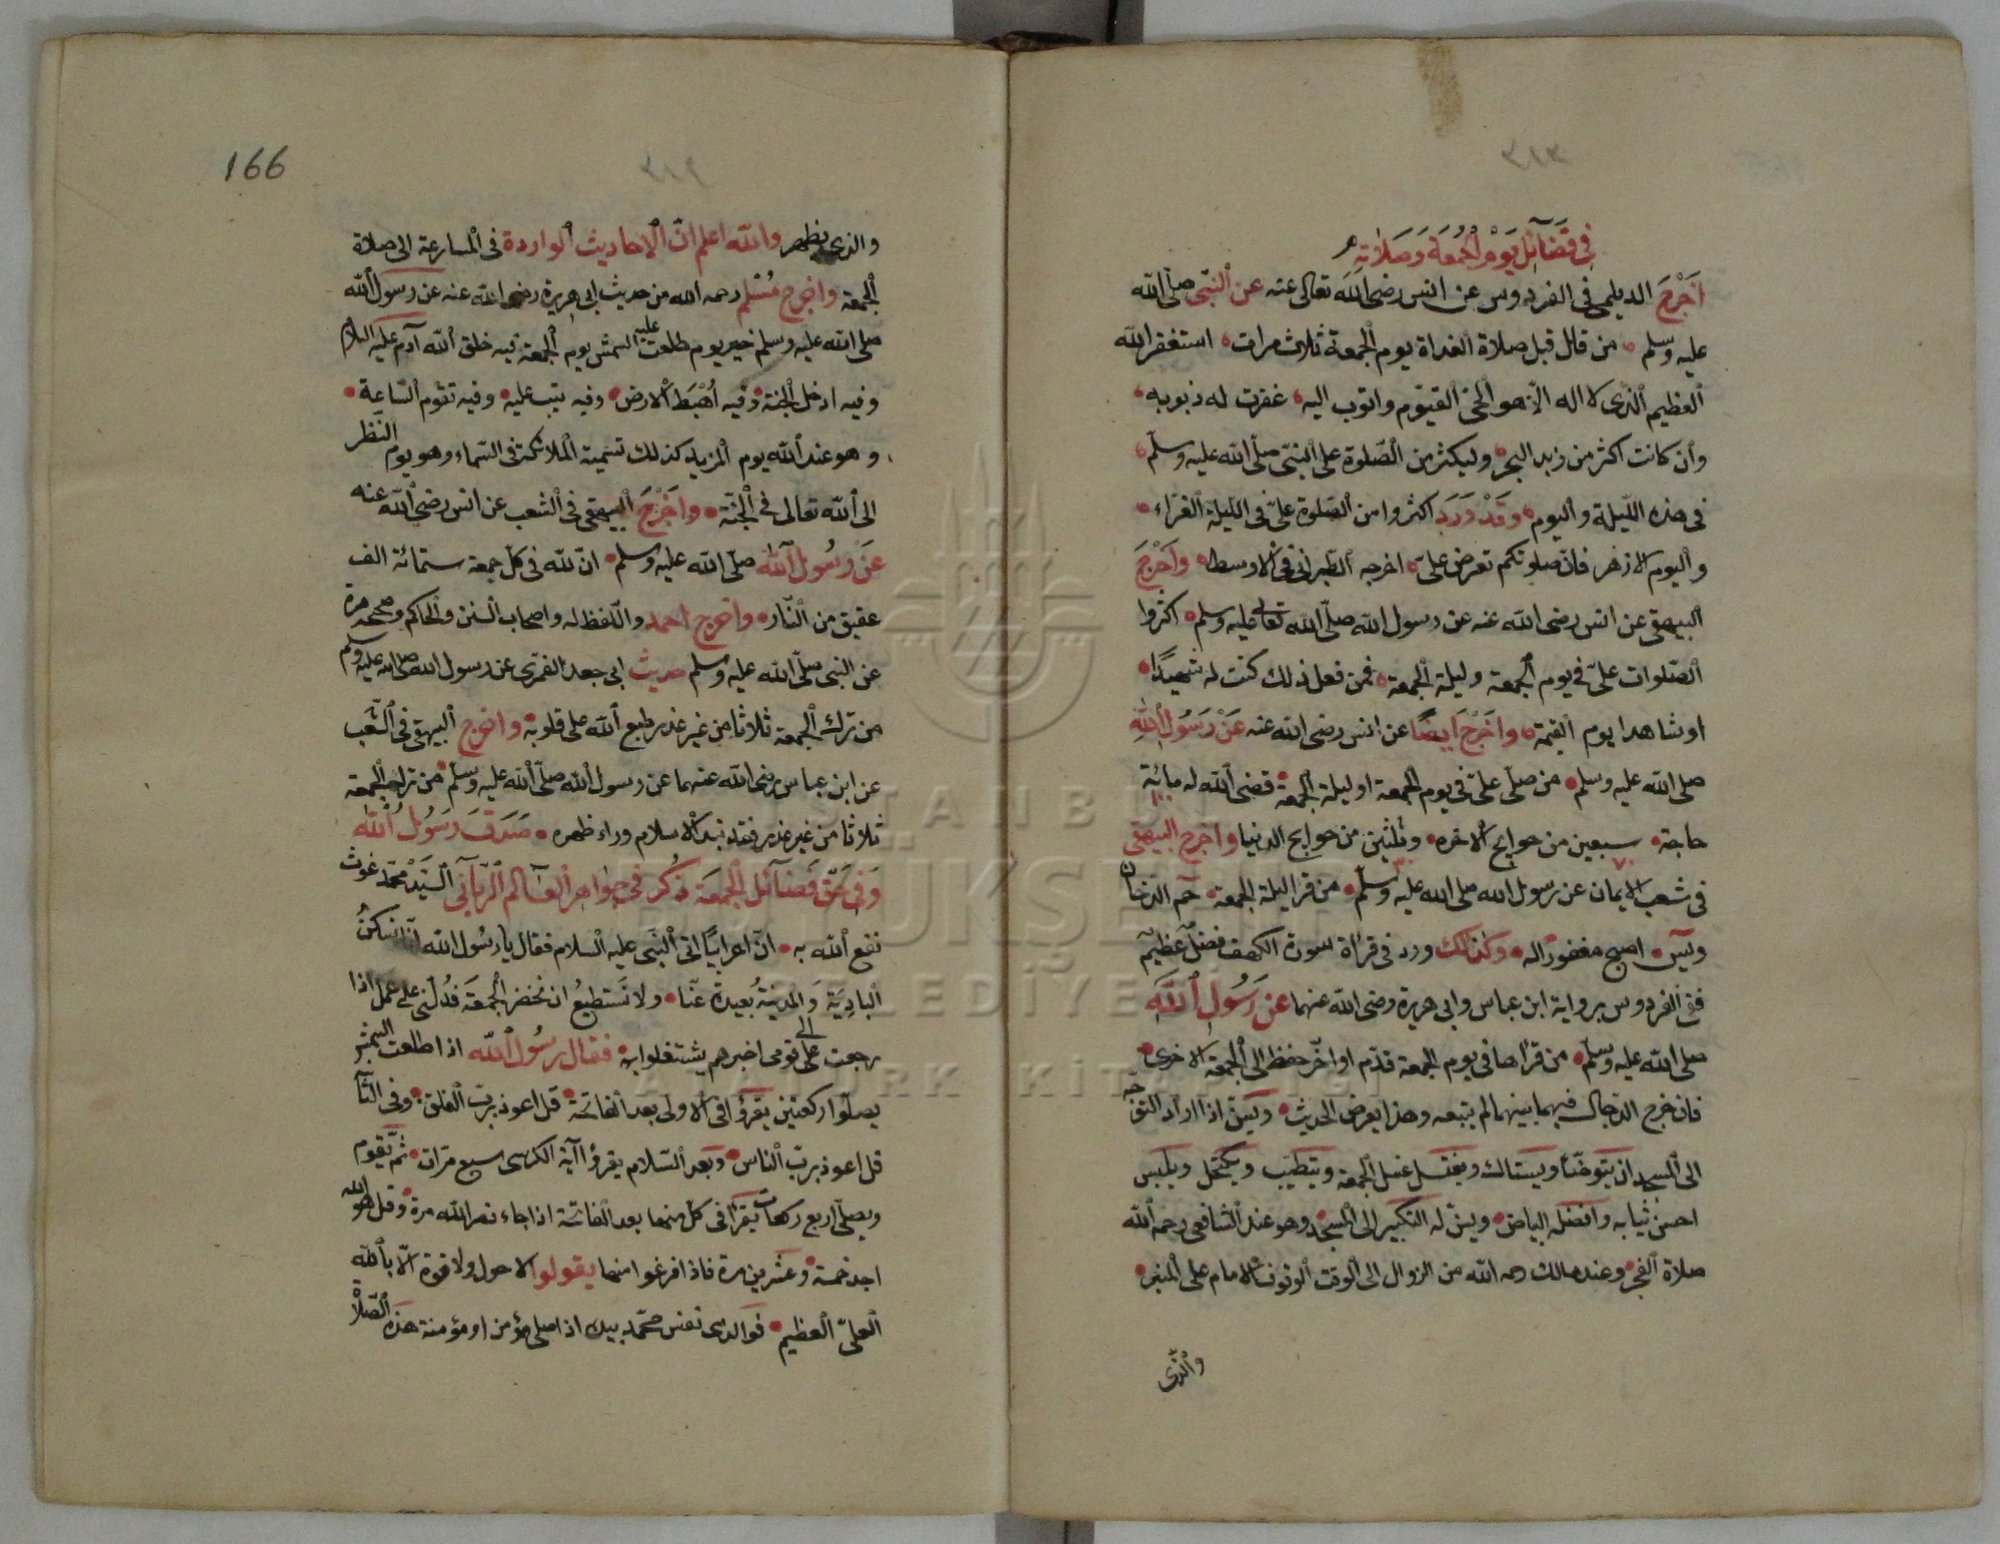 في فضآئل يوم الجمعة وصلاته
اخرج الديلمى فى الفردوس عن انس رضى الله تعالى عنه عن النبى صلى الله
عليه وسلم من قال قبل صلاة الغداة يوم الجمعة ثلاث مرات استغفر الله
العظيم الذى لا اله الا هو الحى القيوم واتوب اليه غفرت له ذنوبه
وان كانت اكثر من زبد البحر وليكثر من الصلوة على النبى صلى الله عليه وسلم
فى هذه الليلة واليوم وقد ورد اكثروا من الصلوة على فى الليلة الغراء
واليوم الازهر فان صلوتكم تعرض على اخرجه الطبرانى فى الاوسط واخرج
البيهقى عن انس رضى الله عنه عن رسول الله صلى الله تعالى عليه وسلم اكثروا
الصلوات على فى يوم الجمعة وليلة الجمعة فمن فعل ذلك كنت له شهيدا
او شاهدا يوم القيمة واخرج ايضا عن انس رضى الله عنه عن رسول الله
صلى الله عليه وسلم من صلى على فى يوم الجمعة او ليلة الجمعة قضى الله له مائة
حاجة سبعين من حوايج الاخره وثلثين من حوايج الدنيا واخرج البيهقى
فى شعب الايمان عن رسول الله صلى الله عليه وسلم من قرا ليلة الجمعة حم الدخان
ويس اصبح مغفورا له وكذلك ورد فى قراة سورة الكهف فضل عظيم
ففى الفردوس برواية ابن عباس وابى هريرة رضى الله عنهما عن رسول الله
صلى الله عليه وسلم من قراها فى يوم الجمعة قدم او اخر حفظ الى الجمعة الاخرى
فان خرج الدجال فيهما بينهما لم يتبعه وهذا بعض الحديث ويسن اذا اراد التوجه
الى المسجد ان يتوضأ ويستاك ويغتسل غسل الجمعة ويتطيب ويكتحل ويلبس
احسن ثيابه وافضله البياض ويسن له التكبير الى المسجد وهو عند الشافعى رحمه الله
صلاة الفجر وعند مالك رحمه الله من الزوال الى الوقت الوقوف الامام على المنبر
والذى
166
والذى يظهر والله اعلم ان الاحاديث الواردة فى المسارعة الى صلاة
الجمعة واخرج مسلم رحمه الله من حديث ابى هريرة رضى الله عنه عن رسول الله
صلى الله عليه وسلم خير يوم طلعت عليه الشمس يوم الجمعة فيه خلق الله آدم عليه السلام
وفيه ادخل الجنة وفيه اهبط الارض وفيه تيب عليه وفيه تقوم الساعة
وهو عند الله يوم المزيد كذلك تسمية الملائكة فى السماء وهو يوم النظر
الى الله تعالى فى الجنة واخرج البيهقى فى الشعب عن انس رضى الله عنه
عن رسول الله صلى الله عليه وسلم ان لله فى كل جمعة ستمائة الف
عتيق من النار واخرج احمد واللفظ له واصحاب السنن والحاكم وصححه مرة
عن النبى صلى الله عليه وسلم حديث ابى جعد الضمرى عن رسول الله صلى الله عليه وسلم
من ترك الجمعة ثلاثا من غير عذر طبع الله على قلوبه واخرج البيهقى فى الشعب
عن ابن عباس رضى الله عنهما عن رسول الله صلى الله عليه وسلم من ترك الجمعة
ثلاثا من غير عذر فقد نبذ الاسلام وراء ظهره صدق رسول الله
وفى حق فضآئل الجمعة ذكر فى جواهر العالم الربانى السيد محمد غوث
نفع الله به ان اعرابيا اتى النبى عليه السلام فقال يا رسول الله انا نسكن
البادية والمدينة بعيدة عنا ولا نستطيع ان نحضر الجمعة فدلنى على عمل اذا
رجعت على الى قومى اخبرهم يشتغلوا به فقال رسول الله اذا طلعت الشمس
يصلوا ركعتين يقرؤا فى الاولى بعد الفاتحة قل اعوذ برب الفلق وفى الثا
قل اعوذ برب الناس وبعد السلام يقرؤا آية الكرسى سبع مرات ثم يقوم
ويصلى اربع ركعات يقرا فى كل منها بعد الفاتحة اذا جاء نصر الله مرة وقل هو الله
احد خمسة وعشرين مرة فاذا فرغوا منها يقولوا لا حول ولا قوة الا بالله
العلى العظيم فوالذى نفس محمد بيده اذا صلى مؤمن او مؤمنة هذه الصلاة